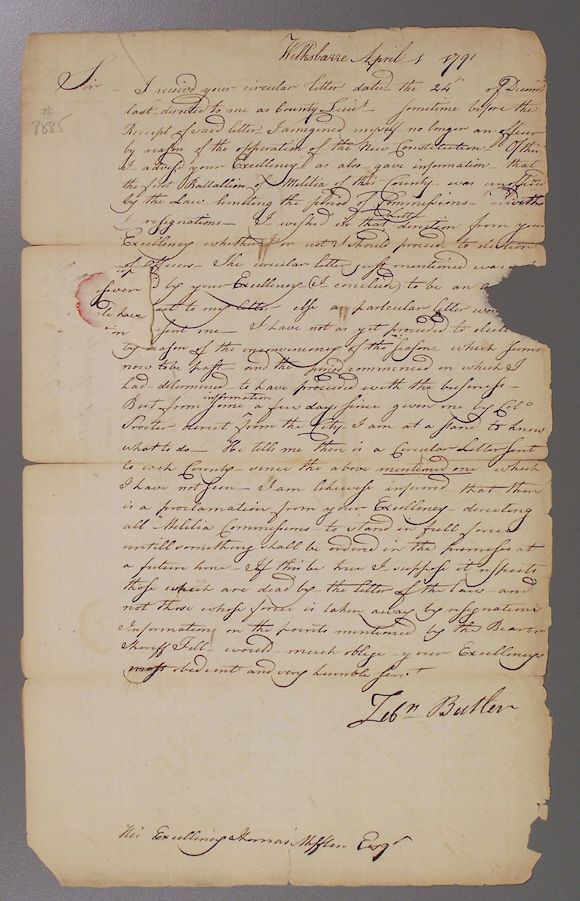 Wilksbarre April 1 1791
Sir
# 7885
I receivd your circular letter dated the 24th of Decemb
last directed to me as County Lieut. Sometime before the
Receipt of said letter I amigined myself no longer an officer
by reason of the opperation of the New Constitution Of this
I advisd your Excellency as also gave information that
the first Battallion of Militia of this County was
by the Law limiting the period of Commissions
resignations I wished in that direction from your
Excellency whether or not I should proceed to election
of officers The circular letter just mentioned was
by your Excellency (I conceived) to be an a
to my letter else a particular letter wou
To have
sent me I have not as yet proceeded to elect
by reason of the inconveniency of the season which seems
now to be past and the period commenced in which I
had determined to have proceeded with the business
But from some information a few days since given me by Colo
Procter direct from the City I am at a stand to know
what to do He tells me there is a Circular Letter sent
to each County since the above mentioned one which
I have not seen I am likewise informd that there
is a proclamation from your Excellency directing
all Militia Commissions to stand in full force
untill something shall be ordered in the premises at
a future time If this be true I suppose it respects
those which are dead by the letter of the law and
not those whose force is taken away by resignations
Information on the points mentioned by the Bearer
Sheriff Fell would much oblige your Excellencys
most obedient and very humble Servt
Zebn Butler
His Excellency Thomas Mifflin Esqr